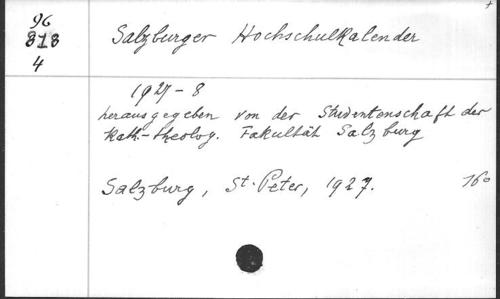 96
818
4
Salzburger Hochschulkalender
1927-8
herausgegeben von der Studentenschaft der
Kath.-theolog. Fakultät Salzburg
Salzburg, St. Peter, 1927. 16°